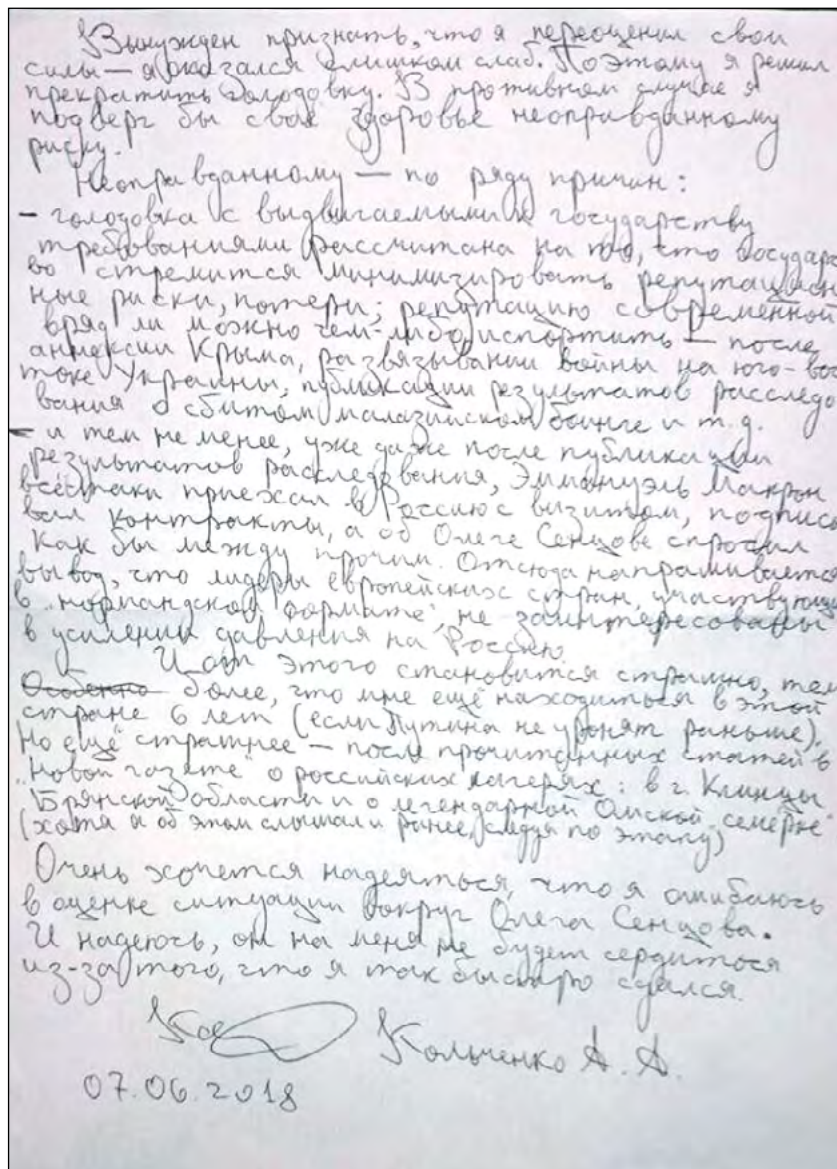 Вынужден признать, что я переоценил свои
силы — я оказался слишком слаб. Поэтому я решил
прекратить голодовку. В противном случае я
подверг бы свое здоровье неоправданному
риску.
Неоправданному — по ряду причин:
- голодовка с выдвигаемыми к государству
требованиями рассчитана на то, что государс
во стремится минимизировать репутацион
ные риски, потери; репутацию современной
вряд ли можно чем-либо испортить — после
аннексии Крыма, развязывании войны на юго-вос
токе Украины, публикации результатов расследо
вания о сбитом малазийском боинге и т.д.
- и тем не менее, уже даже после публикации
результатов расследования, Эммануэль Макрон
всё-таки приехал в Россию с визитом, подписы
вал контракты, а об Олеге Сенцове спросил
как бы между прочим. Отсюда напрашивается
вывод, что лидеры европейских стран, участвующи
в „нормандском формате", не заинтересованы
в усилении давления на Россию.
И от этого становится страшно, тем
более, что мне ещё находиться в этой
стране 6 лет (если Путина не уронят раньше).
Но ещё страшнее — после прочитанных статей в
„Новой газете" о российских лагерях: в г. Клинцы
Брянской области и о легендарной Омской „семёрке"
(хотя и об этом слышал и ранее, следуя по этапу)
Очень хочется надеяться, что я ошибаюсь
в оценке ситуации вокруг Олега Сенцова.
И надеюсь, он на меня не будет сердиться
из-за того, что я так быстро сдался.
Кольченко А. А.
07.06.2018